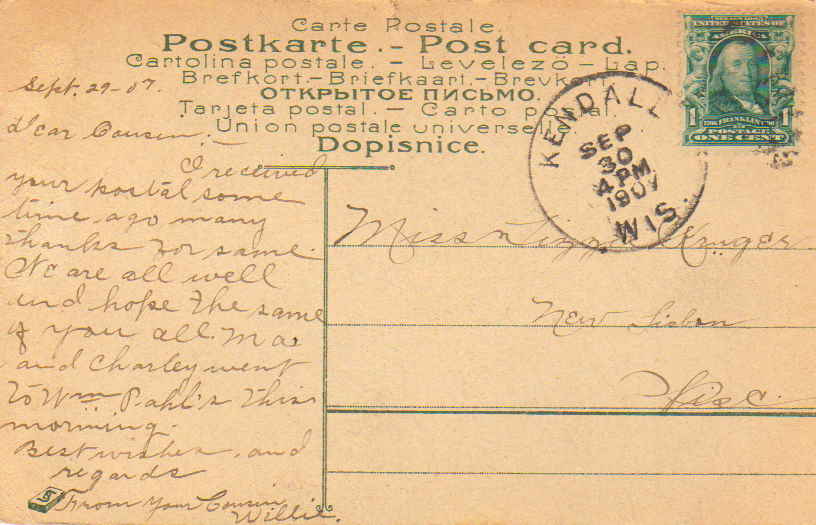 Carte Postale.
Postkarte. - Post card.
Cartolina postale. - Levelező - Lap.
Brefkort. - Briefkaart. - Brevkort.
ОТКРЫТОЕ ПИСЬМО.
Tarjeta postal. - Carto postal.
Union postale universelle.
Dopisnice.
Sept. 29-07.
Dear Cousin; -
I received
your postal some
time ago many
thanks for same.
We are all well
and hope the same
of you all. Ma
and Charley went
to Wm Pahl's this
morning.
Best wishes and
regards
From Your Cousin
Willie.
KENDALL
SEP
30
4 PM
1907
WIS.
AMERICA
1 FRANKLIN 1
POSTAGE
ONE CENT
Miss Lizzie Krüger
New Lisbon
Wisc.